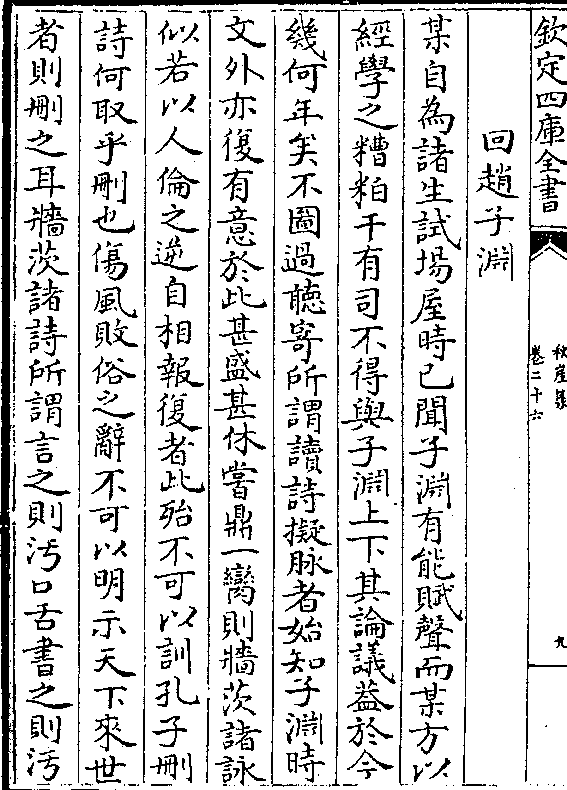 欽定四庫全書
秋崖集
卷二十六
九
回趙子淵
某自為諸生試場屋時已聞子淵有能賦聲而某方以
經學之糟粕干有司不得與子淵上下其論議葢於今
幾何年矣不圖過聽寄所謂讀詩擬脉者始知子淵時
文外亦復有意於此甚盛甚休嘗鼎一臠則牆茨諸詠
似若以人倫之逆自相報復者此殆不可以訓孔子刪
詩何取乎刪也傷風敗俗之辭不可以明示天下來世
者則刪之耳牆茨諸詩所謂言之則汚口舌書之則汚